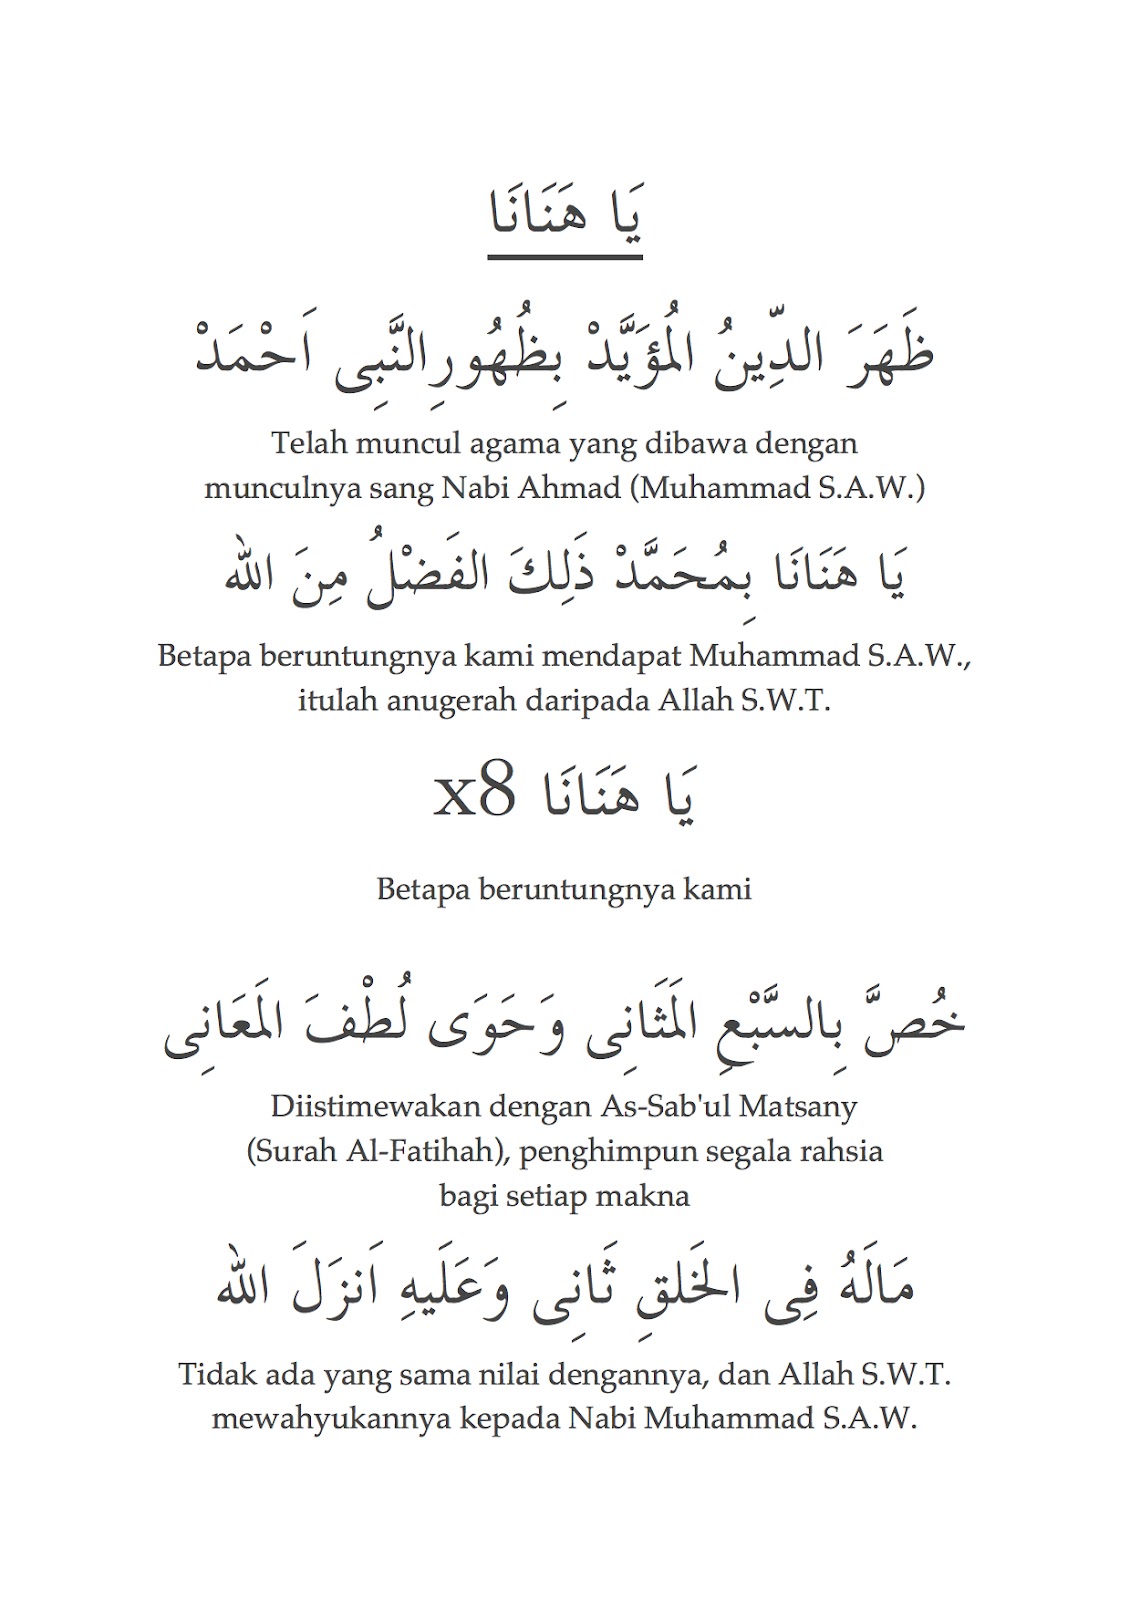 يَا هَنَانَا
ظَهَرَ الدِّينُ المُؤَيَّدْ بِظُهُورِالنَّبِى اَحْمَدْ
Telah muncul agama yang dibawa dengan
munculnya sang Nabi Ahmad (Muhammad S.A.W.)
يَا هَنَانَا بِمُحَمَّدْ ذَلِكَ الفَضْلُ مِنَ الله
Betapa beruntungnya kami mendapat Muhammad S.A.W.,
itulah anugerah daripada Allah S.W.T.
يَا هَنَانَا x8
Betapa beruntungnya kami
خُصَّ بِالسَّبْعِ المَثَانِى وَحَوَى لُطْفَ المَعَانِى
Diistimewakan dengan As-Sab'ul Matsany
(Surah Al-Fatihah), penghimpun segala rahsia
bagi setiap makna
مَالَهُ فِى الخَلقِ ثَانِى وَعَلَيهِ اَنزَلَ الله
Tidak ada yang sama nilai dengannya, dan Allah S.W.T.
mewahyukannya kepada Nabi Muhammad S.A.W.